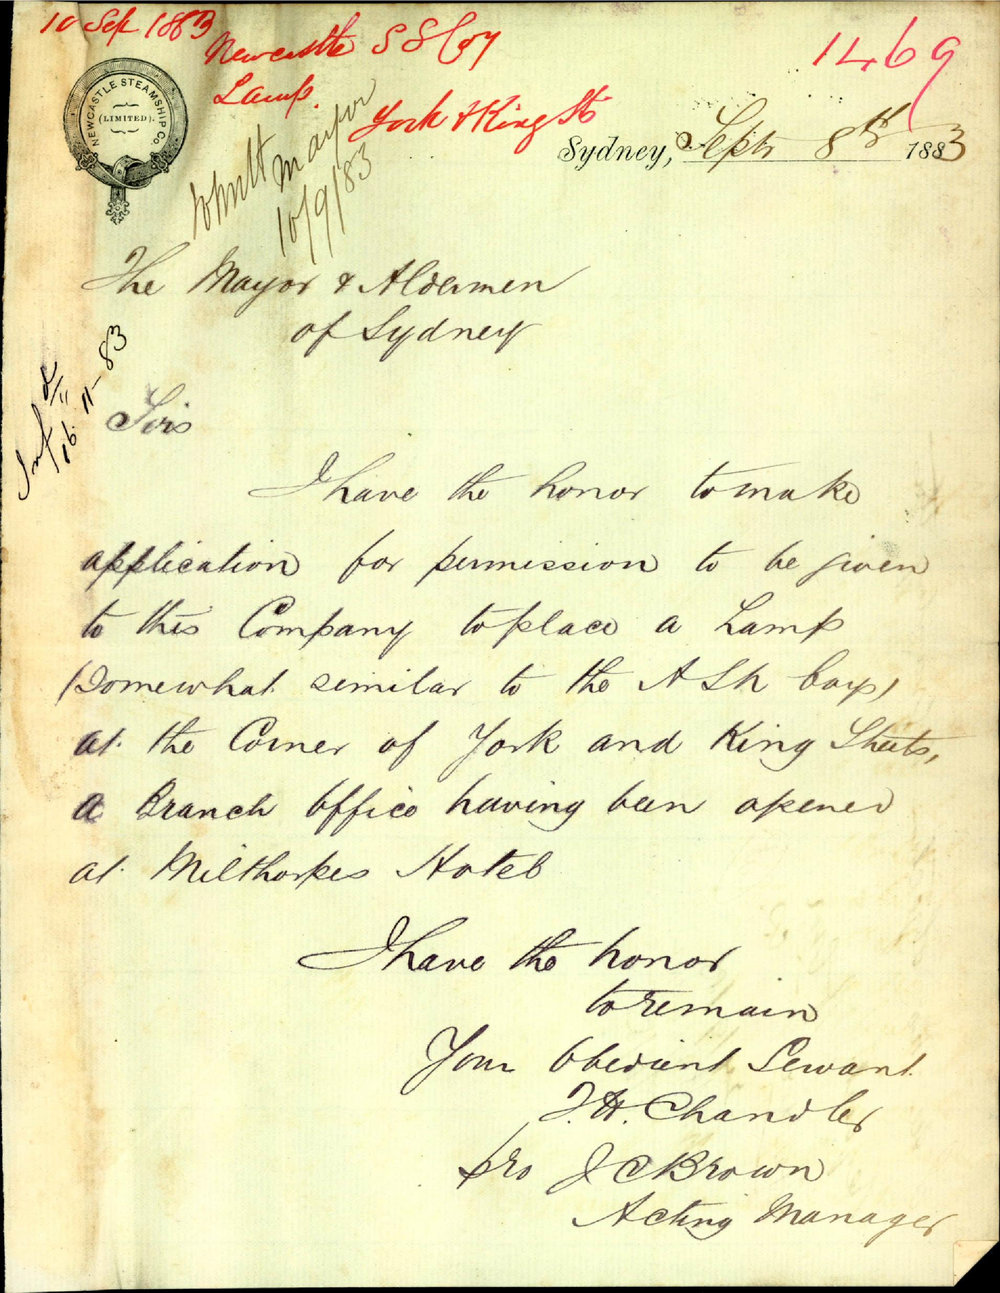 10 Sep 1883
Newcastle S S Coy
Lamp.
York & King St
1469
NEWCASTLE STEAMSHIP Co.
(LIMITED).
Mayor
10/9/83
Sydney, Septr 8th 1883
The Mayor & Aldermen
of Sydney
16. 11- 83
Sirs
I have the honor to make
application for permission to be given
to this Company to place a Lamp
(Somewhat similar to the A S N Coys)
at the Corner of York and King Streets,
a Branch Office having been opened
at Milthorpes Hotel
I have the honor
to remain
Your Obedient Servant
J. H. Chandler
pro J C Brown
Acting Manager